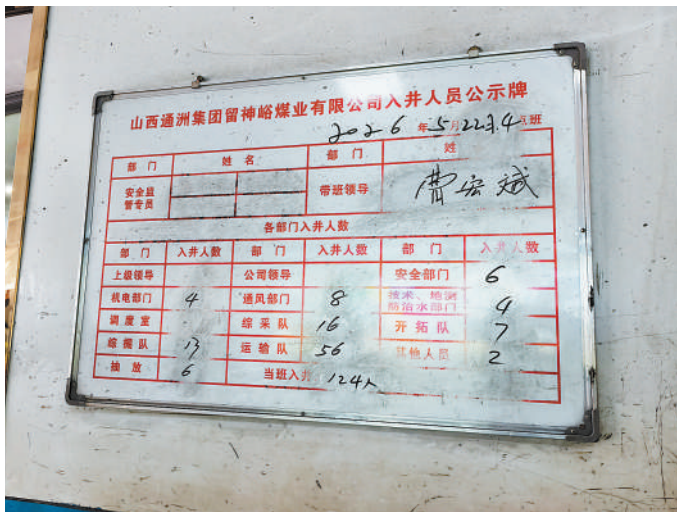 山西通洲集团留神峪煤业有限公司入井人员公示牌
2026年5月22日4点班
部 门 姓 名 部 门 姓
安全监管专员 带班领导 曹宏斌
各部门入井人数
部 门 入井人数 部 门 入井人数 部 门 入井人数
上级领导 公司领导 安全部门 6
机电部门 4 通风部门 8 技术、地测防治水部门 4
调度室 综采队 16 开拓队 7
综掘队 13 运输队 56 其他人员 2
抽 放 6 当班入井 124人